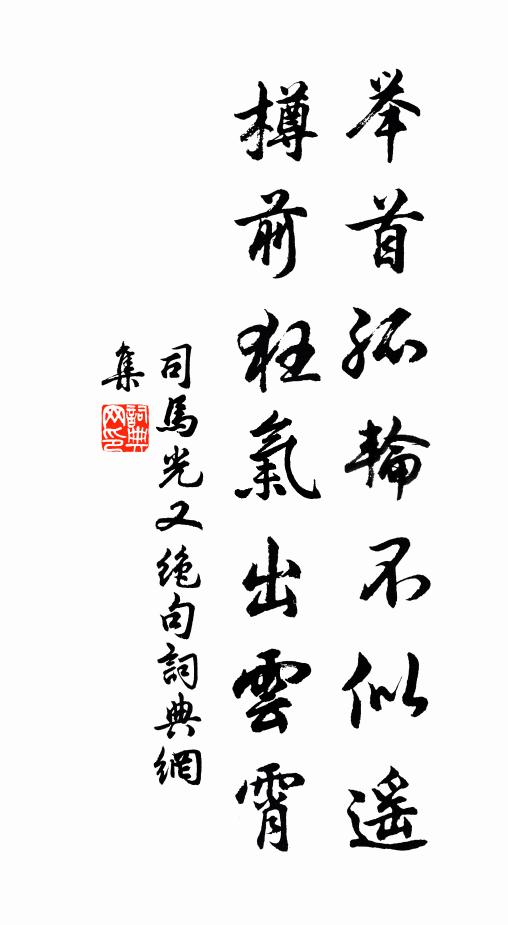 举首孤輪不似遥
樽前狂氣出雲霄
司馬光又绝句詞典網
集
詞典
网印